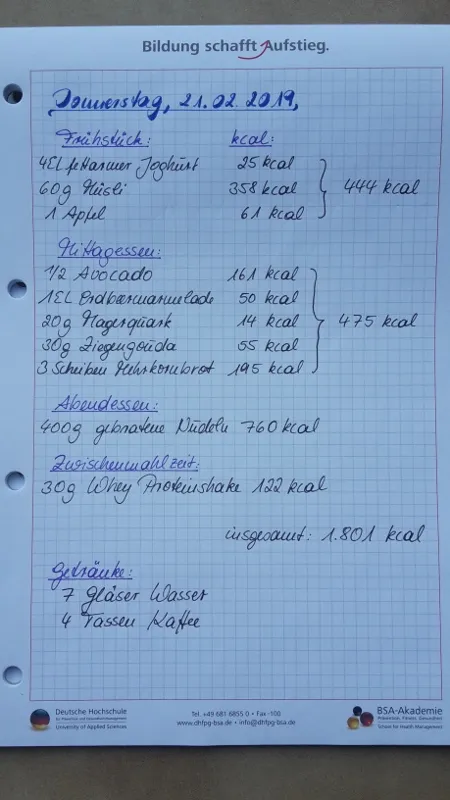 Bildung schafft Aufstieg.
Donnerstag, 21.02.2019,
Frühstück: kcal:
4EL fettarmer Joghurt 25 kcal
60g Müsli 358 kcal 444 kcal
1 Apfel 61 kcal
Mittagessen:
1/2 Avocado 161 kcal
1EL Erdbeermarmelade 50 kcal
20g Magerquark 14 kcal 475 kcal
30g Ziegengouda 55 kcal
3 Scheiben Mehrkornbrot 195 kcal
Abendessen:
400g gebratene Nudeln 760 kcal
Zwischenmahlzeit:
30g Whey Proteinshake 122 kcal
insgesamt: 1.801 kcal
Getränke:
7 Gläser Wasser
4 Tassen Kaffee
Deutsche Hochschule
für Prävention und Gesundheitsmanagement
University of Applied Sciences
Tel. +49 681 6855 0 • Fax -100
www.dhfpg-bsa.de • info@dhfpg-bsa.de
BSA-Akademie
Prävention, Fitness, Gesundheit
School for Health Management